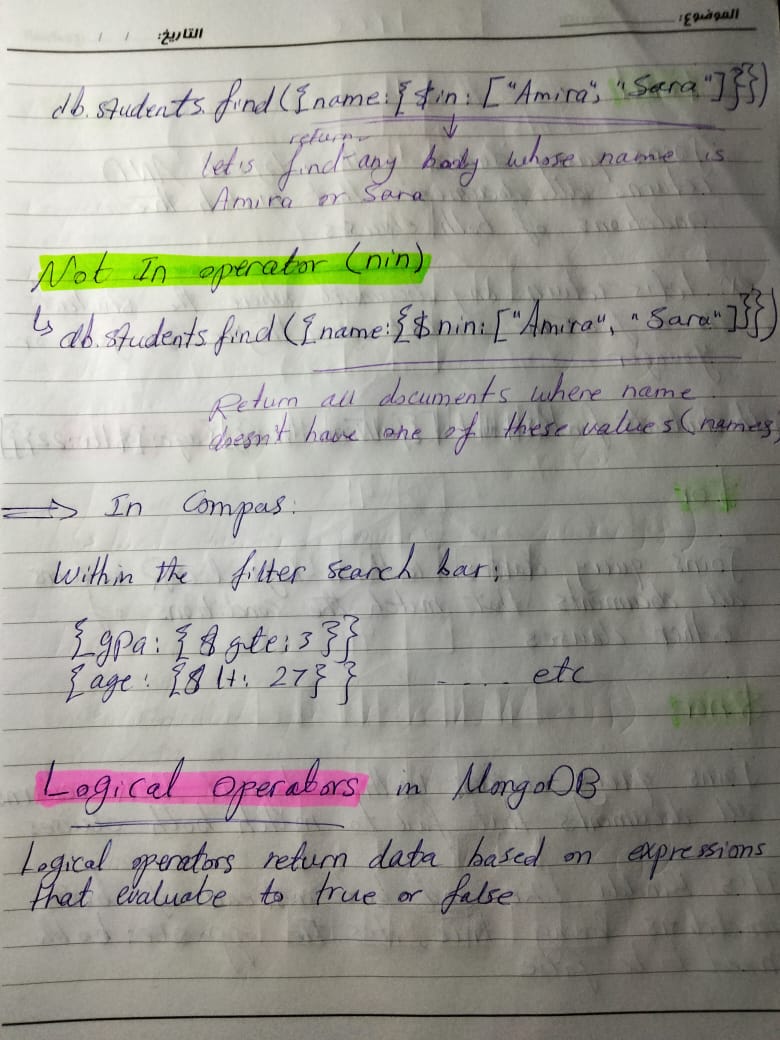 الموضوع:
التاريخ: / /
db.students.find({name:{$in:["Amira", "Sara"]}})
return
let's find any body whose name is
Amira or Sara
Not In operator (nin)
↳ db.students.find({name:{$nin:["Amira", "Sara"]}})
Return all documents where name
doesn't have one of these values (names
⟹ In Compas:
Within the filter search bar:
{gpa:{$gte:3}}
{age:{$lt: 27}} ..... etc
Logical operators in MongoDB
Logical operators return data based on expressions
that evaluate to true or false